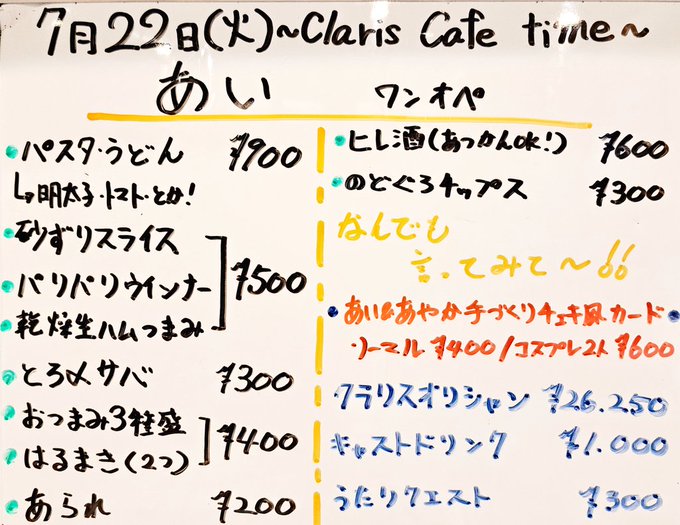 7月22日(火)~Claris Cafe time~
あい ワンオペ
・パスタ・うどん ¥900
↳明太子・トマト・とか!
・砂ずりスライス
・パリパリウインナー ¥500
・乾燥生ハムつまみ
・とろ〆サバ ¥300
・おつまみ3種盛
・はるまき(2つ) ¥400
・あられ ¥200
・ヒレ酒(あつかんOK!) ¥600
・のどぐろチップス ¥300
なんでも
言ってみて~!!
・あい&あやか手づくりチェキ風カード・
・ノーマル ¥400/コスプレ2人 ¥600
クラリスオリシャン ¥26.250
キャストドリンク ¥1.000
うたリクエスト ¥300